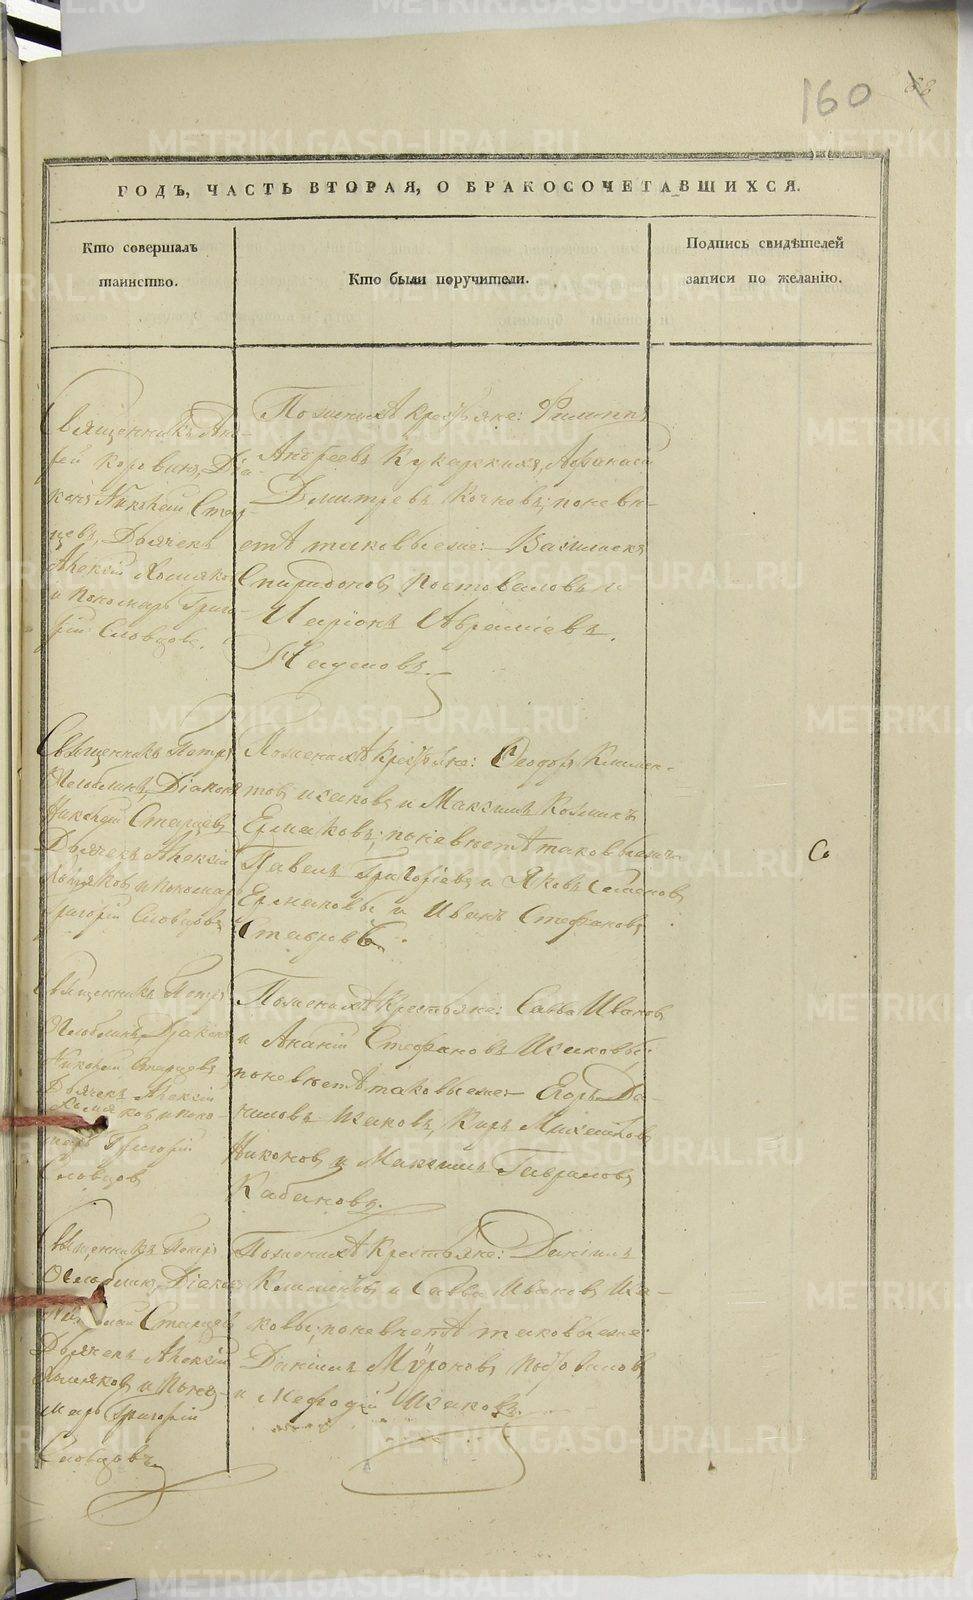 160
68
ГОДЪ, ЧАСТЬ ВТОРАЯ, О БРАКОСОЧЕТАВШИХСЯ.
Кто совершалъ
таинство.
Кто были поручители.
Подпись свидѣтелей
записи по желанію.
Священникъ Анд-
рей Коровинъ, Діа-
конъ Николай Стар-
цевъ, Дьячекъ
Алексій
и Пономарь Григо-
рій Словцовъ.
По женихѣ крестьяне: Филиппъ
Андреевъ Афанасій
Дмитревъ по невѣ-
стѣ таковыеже: Василискъ
Спиридоновъ Постоваловъ и
Иларіонъ Авраміевъ
Священникъ Петръ
Діаконъ
Николай Старцевъ
Дьячекъ Алексій
и Пономарь
Григорій Словцовъ
По женихѣ крестьяне: Ѳеодоръ Климен-
товъ Исаковъ и Максимъ Козминъ
Ермаковъ; по невѣстѣ таковыежъ
Павелъ Григоріевъ и Яковъ Семеновъ
Ермаковы и Иванъ Стефановъ
Священникъ Петръ
Діаконъ
Николай Старцевъ
Дьячекъ Алексій
и Поно-
марь Григорій
Словцовъ
По женихѣ крестьяне: Савва Ивановъ
и Ананій Стефановъ Исаковы;
по невѣстѣ таковыеже Егоръ Да-
ниловъ Исаковъ, Киръ
Никоновъ и Максимъ Гавриловъ
Кабановъ.
Священникъ Петръ
Діаконъ
Николай Старцевъ
Дьячекъ Алексій
и Поно-
марь Григорій
Словцовъ
По женихѣ крестьяне: Даніилъ
Климентовъ и Савва Ивановъ Иса-
ковы; по невѣстѣ таковыеже
Даніилъ Мироновъ Постоваловъ
и Мефодій Исаковъ.
METRIKI.GASO-URAL.RU